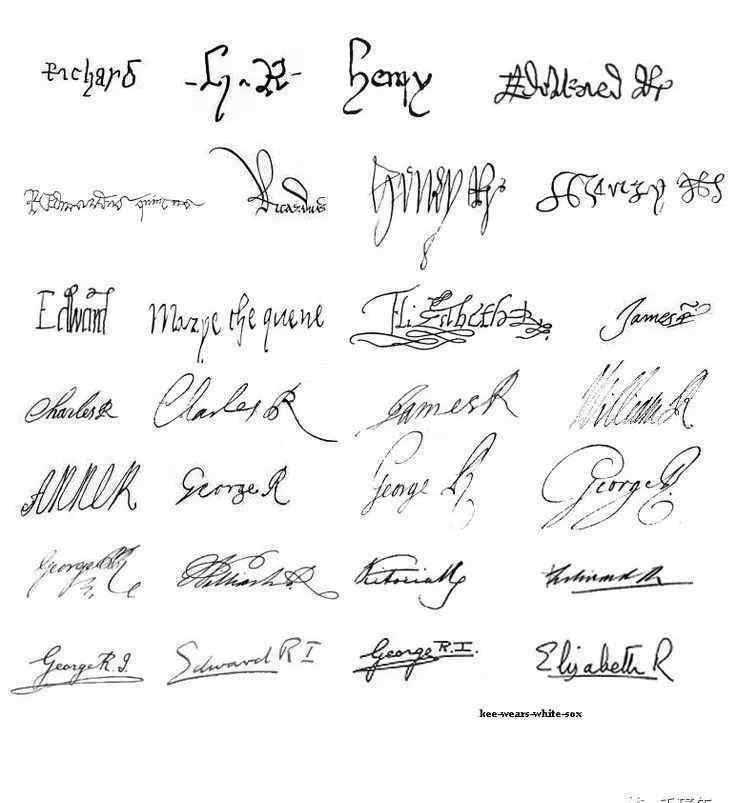 Richard H R Henry Edward R
Edwardus quintus Ricardus Henry R Henry R
Edward Marye the quene Elizabeth R James R
Charles R Charles R James R William R
ANNE R George R George R George R
George R William R Victoria R
George R. I. Edward R I George R.I. Elizabeth R
kee-wears-white-sox